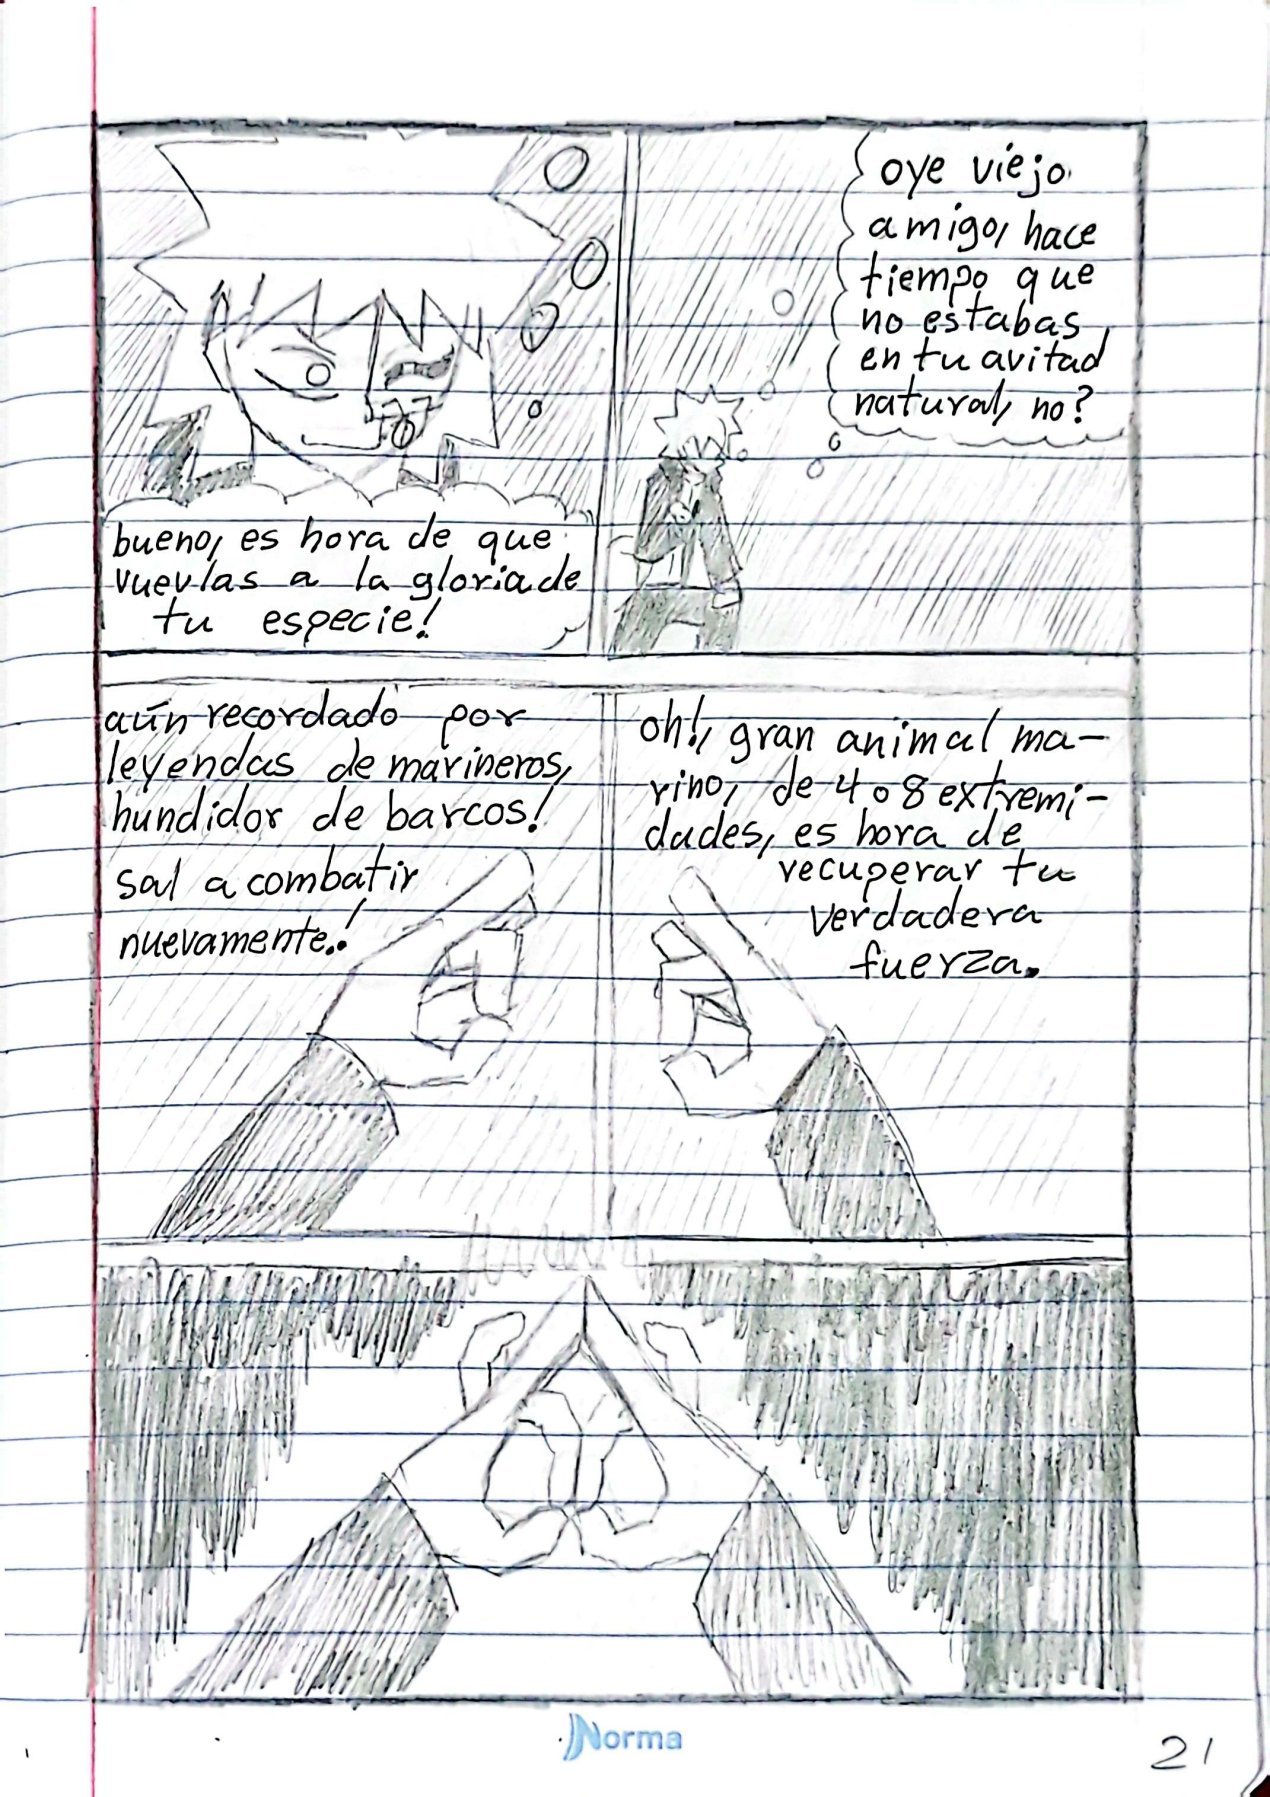 oye viejo
amigo, hace
tiempo que
no estabas
en tu avitad
natural, no?
bueno, es hora de que
vuevlas a la gloria de
tu especie!
oh!, gran animal ma-
rino, de 4 o 8 extremi-
dades, es hora de
recuperar tu
verdadera
fuerza.
aún recordado por
leyendas de marineros,
hundidor de barcos!
sal a combatir
nuevamente.!
Norma
21